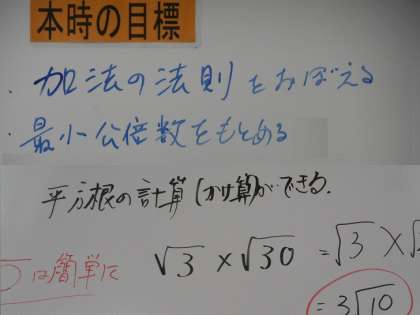 本時の目標
・加法の法則をおぼえる
・最小公倍数をもとめる
平方根の計算(かけ算)ができる.
√3 × √30 = √3 × √
は簡単に
= 3√10